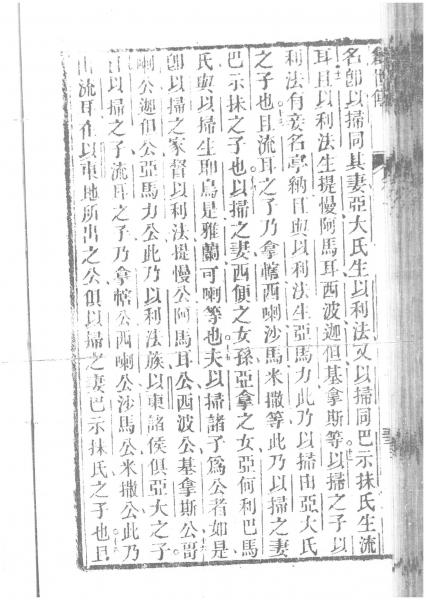 名卽以掃同其妻亞大氏生以利法又以掃同巴示抹氏生流
耳且以利法生提慢阿馬耳西波迦但基拿斯等以掃之子以
利法有妾名亭納且與以利法生亞馬力此乃以掃由亞大氏
之子也且流耳之子乃拿轄西喇沙馬米撒等此乃以掃之妻
巴示抹之子也以掃之妻西便之女孫亞拿之女亞何利巴馬
氏與以掃生耶烏是雅蘭可喇等也夫以掃諸子爲公者如是
卽以掃之家督以利法提慢公阿馬耳公西波公基拿斯公哥
喇公迦但公亞馬力公此乃以利法族以東諸侯俱亞大之子
以掃之子流耳之子乃拿轄公西喇公沙馬公米撒公此乃
由流耳在以東地所出之公俱以掃之妻巴示抹氏之子也且